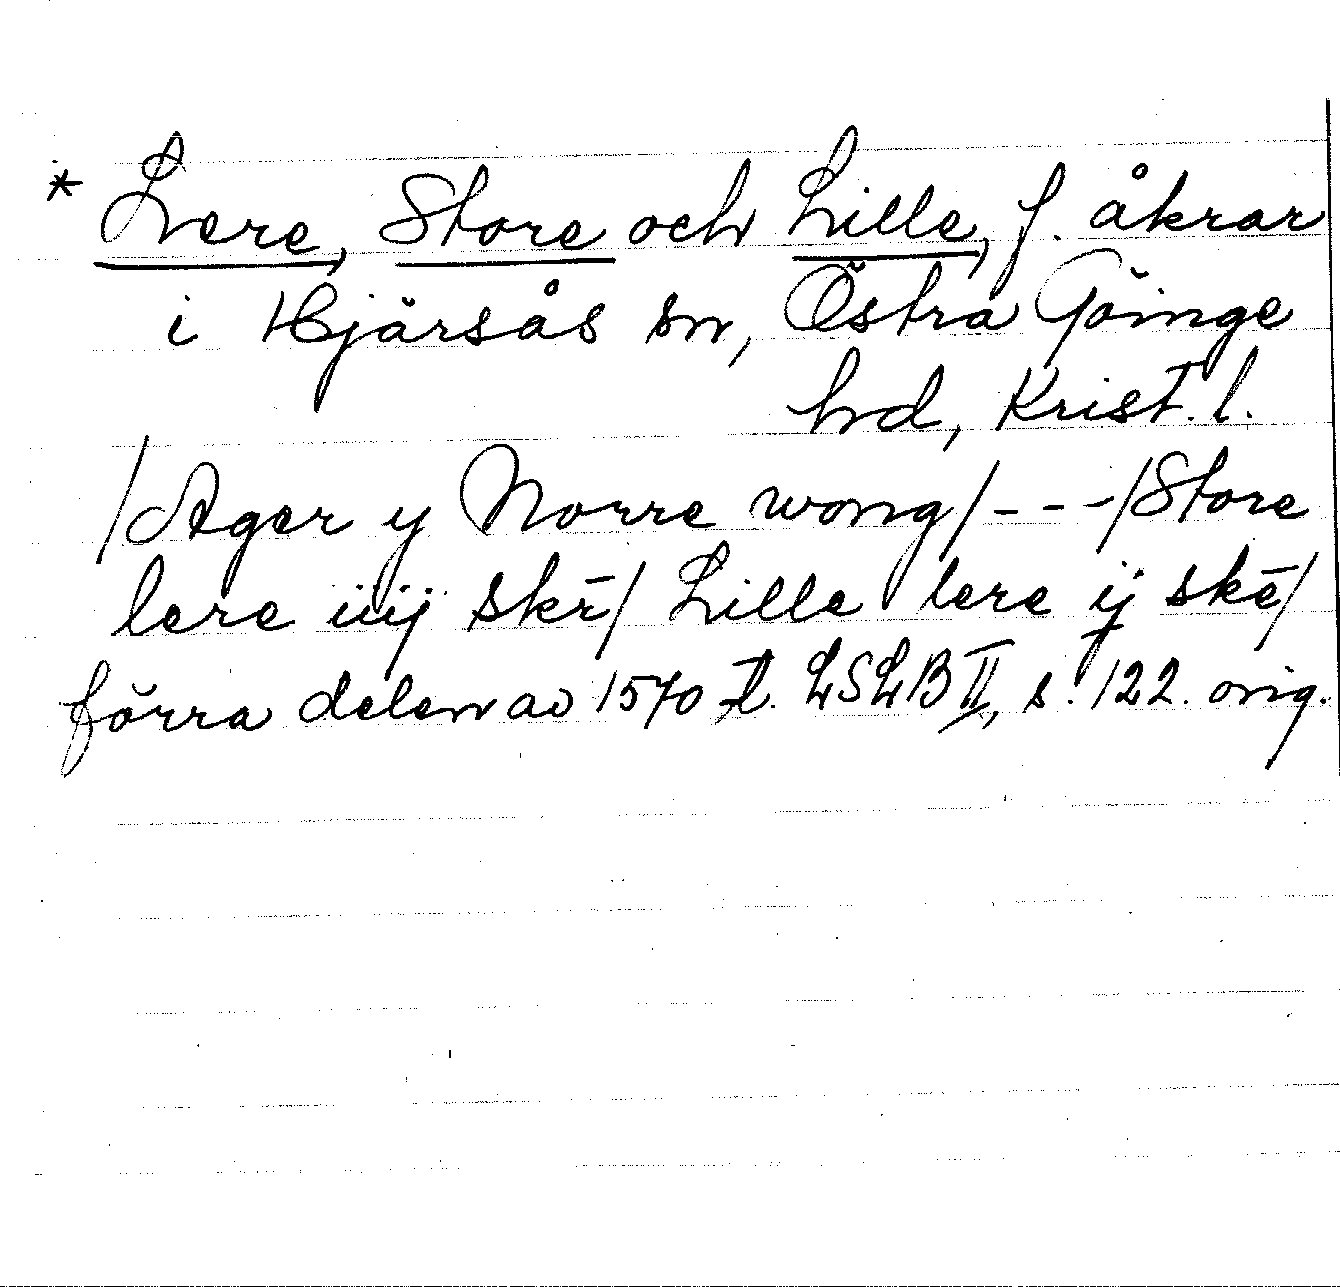 * Lere, Store och Lille, f. åkrar
i Hjärsås sn, Östra Göinge
hd, Krist. l.
/Ager y Norre wong/---/Store
lere iiij skē/ Lille lere ij skē/
förra delen av 1570-t. LSLB II, s. 122. orig.